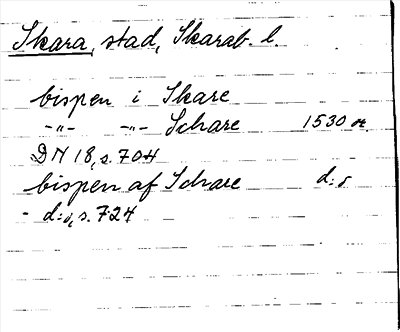 Skara, stad, Skarab. l.
bispen i Skare
-"- -"- Schare 1530 or.
DN 18, s. 704
bispen af Schare d:o
- d:o, s. 724